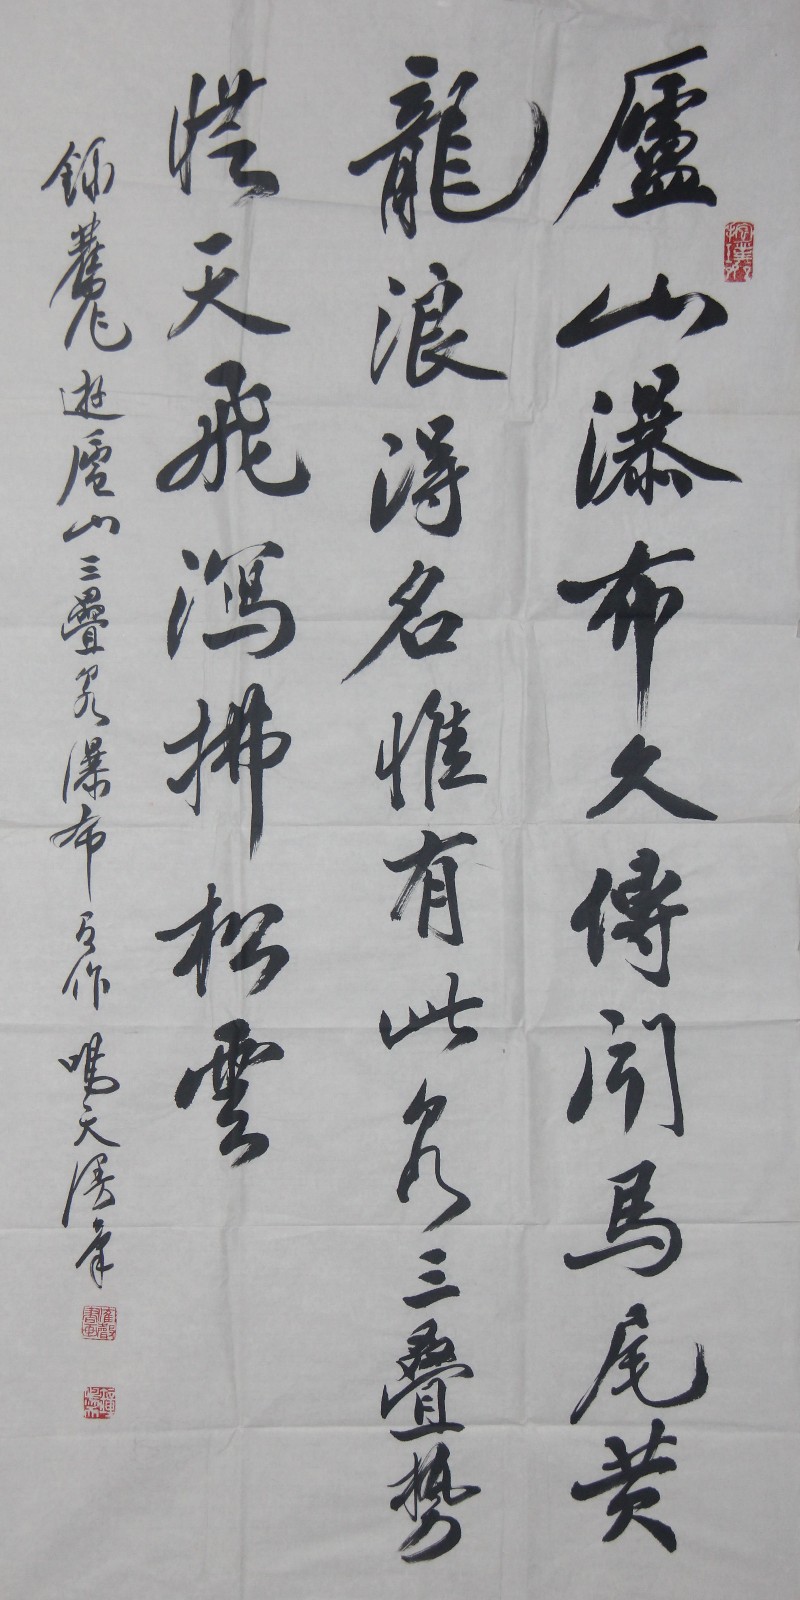 廬山瀑布久傳聞馬尾黄
龍浪得名惟有此泉三疊勢
從天飛瀉拂松雲
錄遊廬山三疊泉瀑布作鳴天漫筆